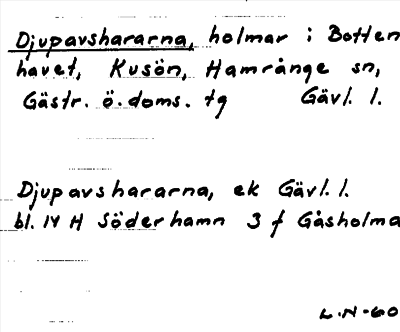 Djupavshararna, holmar i Botten
havet, Kusön, Hamrånge sn,
Gästr. ö. doms. tg Gävl. l.
Djupavshararna, ek Gävl. l.
bl. 14 H Söderhamn 3 f Gåsholma
L.N-60